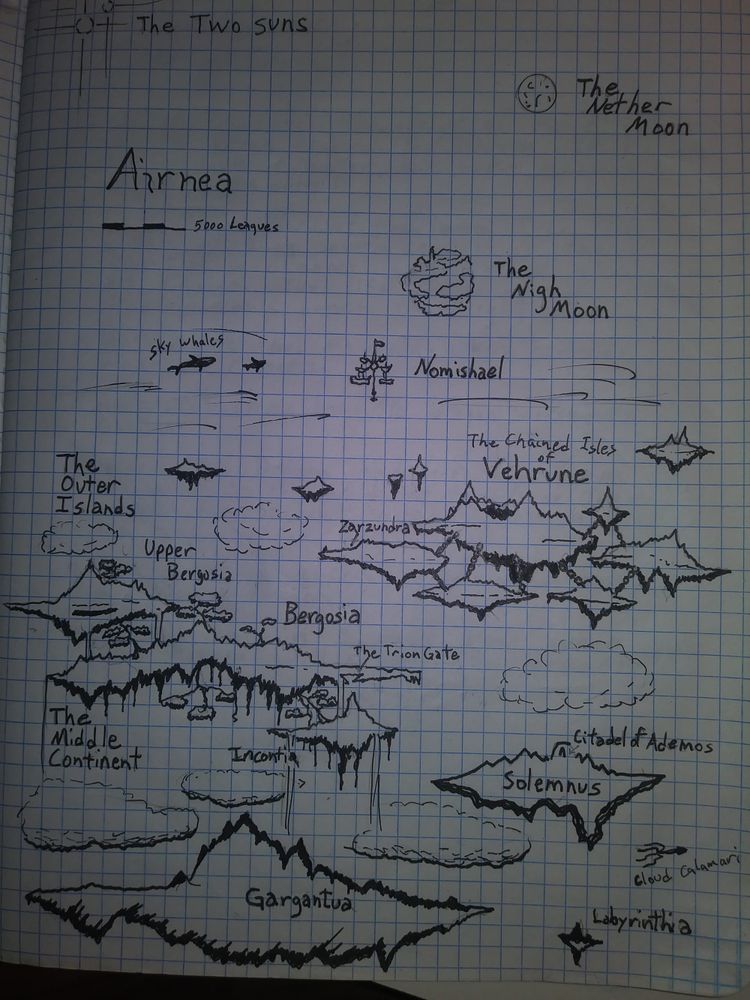 The Two suns
The
Nether
Moon
Airnea
5000 Leagues
The
Nigh
Moon
sky whales
Nomishael
The Chained Isles
of
Vehrune
The
Outer
Islands
Zarzundra
Upper
Bergosia
Bergosia
The Trion Gate
The
Middle
Continent
Incontia
Citadel of Ademos
Solemnus
Cloud Calamari
Gargantua
Labyrinthia